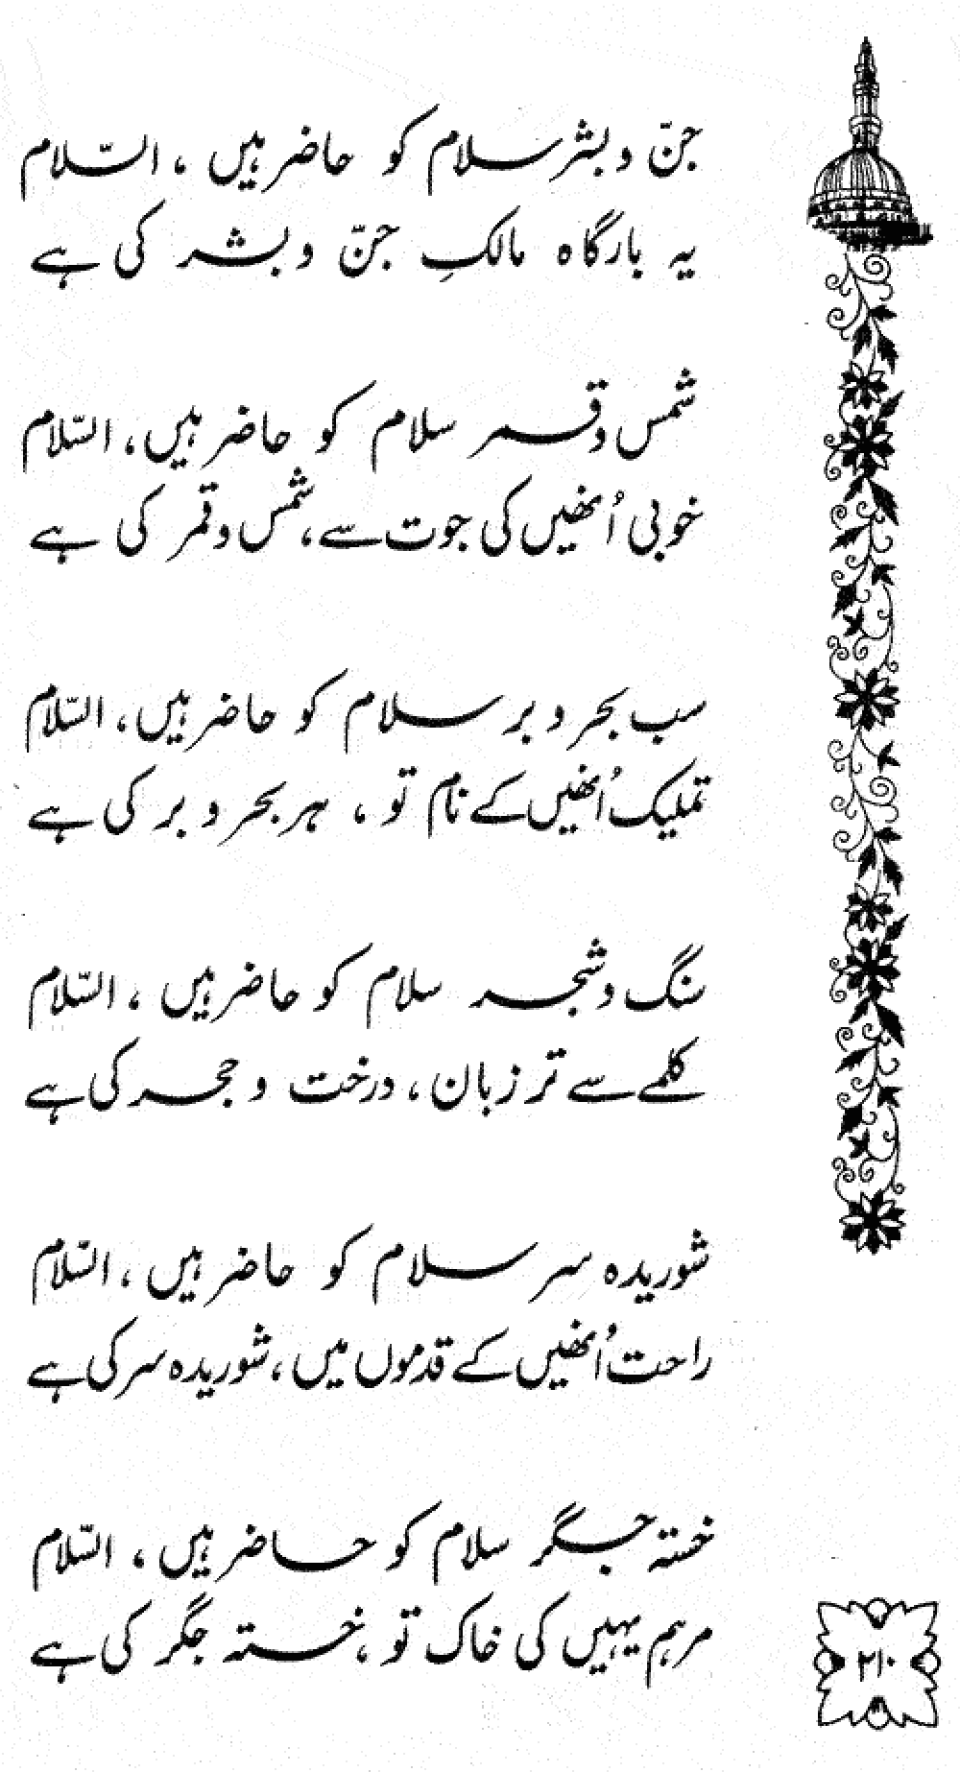 جنّ و بشر سلام کو حاضر ہیں ، السّلام
یہ بارگاہ مالکِ جنّ و بشر کی ہے
شمس و قمر سلام کو حاضر ہیں، السّلام
خوبی اُنھیں کی جوت سے، شمس و قمر کی ہے
سب بحر و بر سلام کو حاضر ہیں، السّلام
تملیک اُنھیں کے نام تو ، ہر بحر و بر کی ہے
سنگ و شجر سلام کو حاضر ہیں ، السّلام
کلمے سے تر زبان ، درخت و حجر کی ہے
شوریدہ سر سلام کو حاضر ہیں ، السّلام
راحت اُنھیں کے قدموں میں ، شوریدہ سر کی ہے
خستہ جگر سلام کو حاضر ہیں ، السّلام
مرہم یہیں کی خاک تو ، خستہ جگر کی ہے
۲۱۰